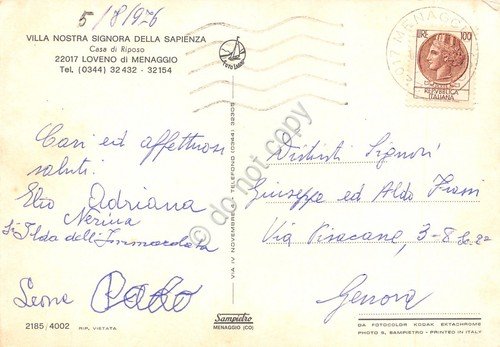 5/8/1976
VILLA NOSTRA SIGNORA DELLA SAPIENZA
Casa di Riposo
22017 LOVENO di MENAGGIO
Tel. (0344) 32432 - 32154
Cari ed affettuosi
saluti.
Elio Adriana
Nerina
Sr Ilda dell'Immacolata
Leone
2185/4002 RIP. VIETATA
FOTO EDIZ.
VIA IV NOVEMBRE TELEFONO (0344) 32305
Sampietro
MENAGGIO (CO)
do not copy
MENAGGIO
LIRE 100
REPVBBLICA
ITALIANA
Distinti Signori
Giuseppe ed Aldo
Via Pisacane, 3-8
Genova
DA FOTOCOLOR KODAK EKTACHROME
PHOTO E. SAMPIETRO - PRINTED IN ITALY